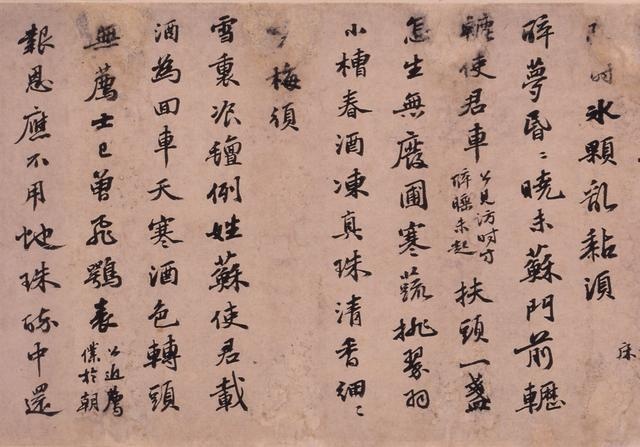 時冰顆亂黏須
醉夢昏〻曉未蘇門前轣
轆使君車公見訪時方醉睡未起扶頭一盞
怎生無廢圃寒蔬挑翠羽
小槽春酒凍真珠清香細〻
梅須
雪裏飡氊例姓蘇使君載
酒為回車天寒酒色轉頭
無薦士已曾飛鶚表公近薦僕於朝
報恩應不用虵珠醉中還